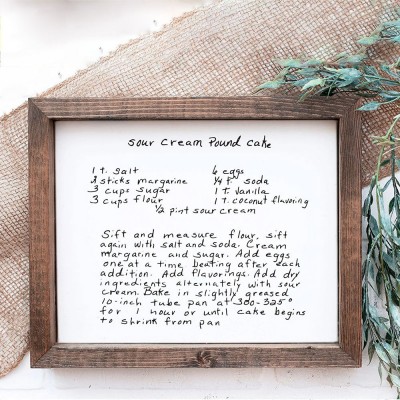 sour cream Pound cake
1 t. salt
sticks margarine
3 cups sugar
3 cups flour
6 eggs
1/4 t. soda
1 t. vanilla
1 t. coconut flavoring
1/2 pint sour cream
Sift and measure flour, sift
again with salt and soda. Cream
margarine and sugar. Add eggs
one at a time. Beating after each
addition. Add flavorings. Add dry
ingredients alternately with sour
cream. Bake in slightly greased
10-inch tube pan at 300-325°
for 1 hour or until cake begins
to shrink from pan